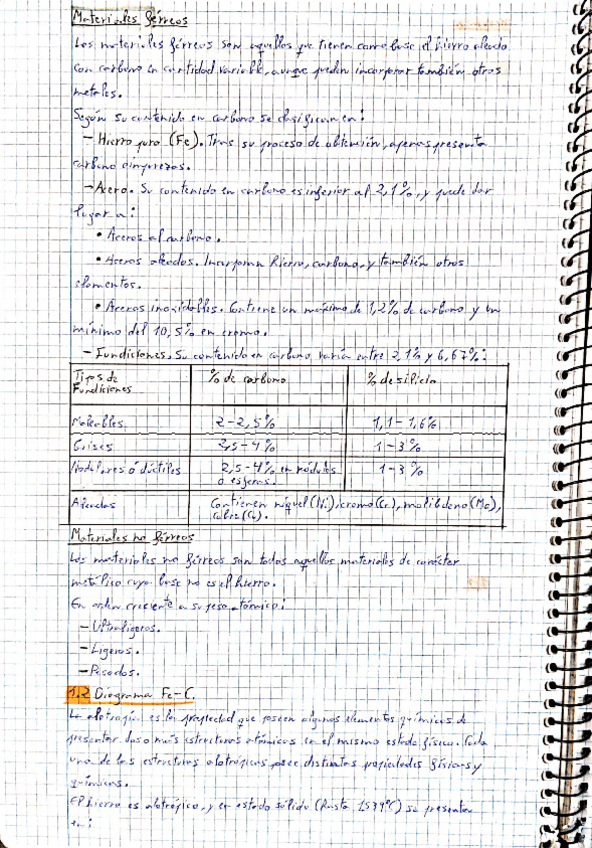 Materiales férreos
Los materiales férreos son aquellos que tienen como base el hierro aleado
con carbono en cantidad variable, aunque pueden incorporar también otros
metales.
Según su contenido en carbono se clasifican en:
– Hierro puro (Fe). Tras su proceso de obtención, apenas presenta
carbono o impurezas.
– Acero. Su contenido en carbono es inferior al 2,1%, y puede dar
lugar a:
• Aceros al carbono.
• Aceros aleados. Incorporan hierro, carbono, y también otros
elementos.
• Aceros inoxidables. Contiene un máximo de 1,2% de carbono y un
mínimo del 10,5% en cromo.
– Fundiciones. Su contenido en carbono varía entre 2,1% y 6,67%:
Tipos de % de carbono % de silicio
Fundiciones
Maleables 2–2,5% 1,1–1,6%
Grises 2,5–4% 1–3%
Nodulares o dúctiles 2,5–4% en nódulos 1–3%
o esferas.
Aleadas Contienen níquel (Ni), cromo (Cr), molibdeno (Mo),
cobre (Cu).
Materiales no férreos
Los materiales no férreos son todos aquellos materiales de carácter
metálico cuya base no es el hierro.
En orden creciente a su peso atómico:
– Ultraligeros.
– Ligeros.
– Pesados.
1.2 Diagrama Fe-C.
La alotropía es la propiedad que poseen algunos elementos químicos de
presentar dos o más estructuras atómicas en el mismo estado físico. Cada
una de las estructuras alotrópicas posee distintas propiedades físicas y
químicas.
El hierro es alotrópico, y en estado sólido (hasta 1539°C) se presenta
en: